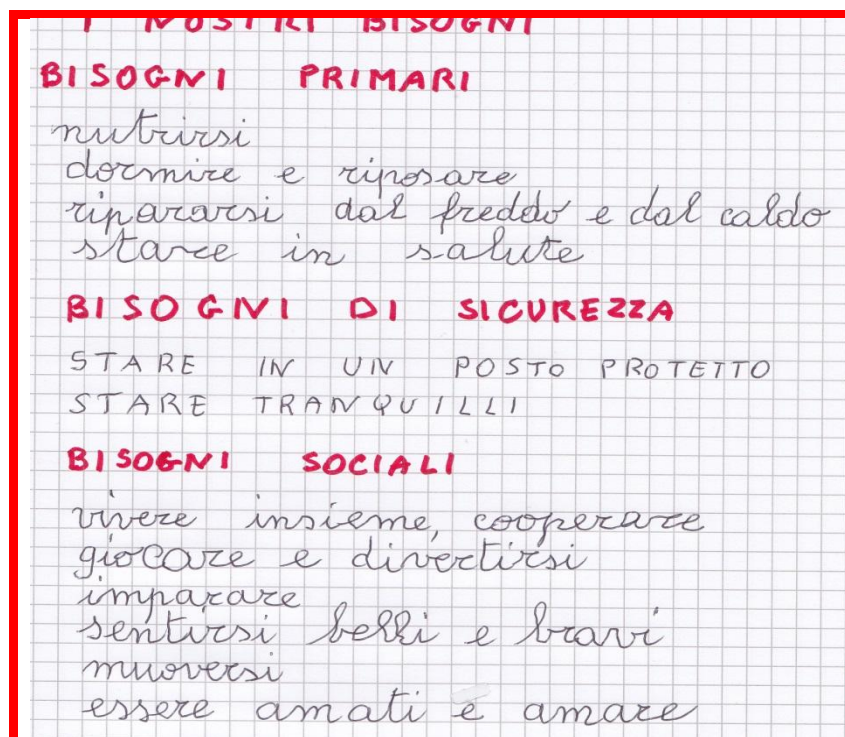 I NOSTRI BISOGNI
BISOGNI PRIMARI
nutrirsi
dormire e riposare
ripararsi dal freddo e dal caldo
stare in salute
BISOGNI DI SICUREZZA
STARE IN UN POSTO PROTETTO
STARE TRANQUILLI
BISOGNI SOCIALI
vivere insieme, cooperare
giocare e divertirsi
imparare
sentirsi belli e bravi
muoversi
essere amati e amare